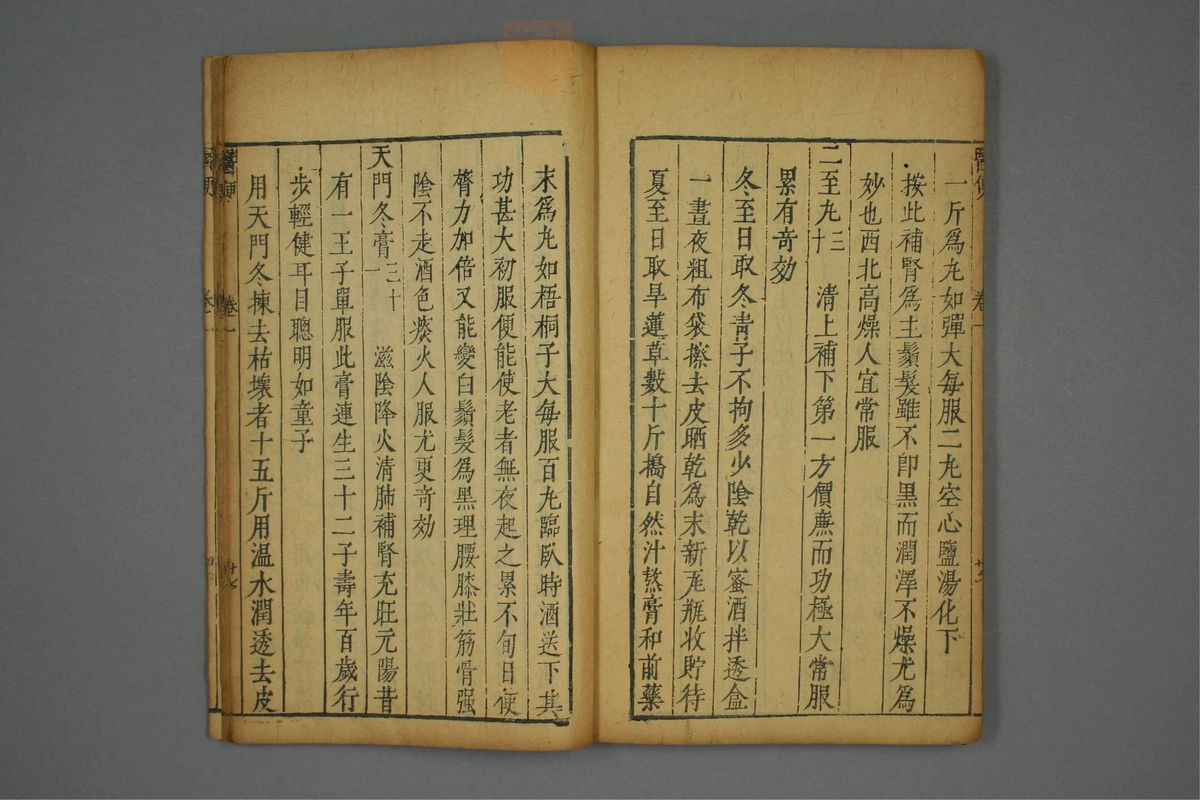 一斤爲丸如彈大每服二丸空心鹽湯化下
按此補腎爲主鬚髮雖不卽黒而潤澤不燥尤爲
妙也西北高燥人宜常服
二至丸三十 清上補下第一方價廉而功極大常服
累有奇効
冬至日取冬靑子不拘多少陰乾以蜜酒拌透盒
一晝夜粗布袋擦去皮晒乾爲末新瓦瓶收貯待
夏至日取旱蓮草數十斤搗自然汁熬膏和前藥
末爲丸如梧桐子大每服百丸臨臥時酒送下其
功甚大初服便能使老者無夜起之累不旬日便
膂力加倍又能變白鬚髮爲黑理腰膝壯筋骨强
陰不走酒色痰火人服尤更奇効
天門冬膏三十一 滋陰降火清肺補腎充旺元陽昔
有一王子單服此膏連生三十二子壽年百歲行
步輕健耳目聰明如童子
用天門冬揀去枯壞者十五斤用温水潤透去皮
醫便
卷一